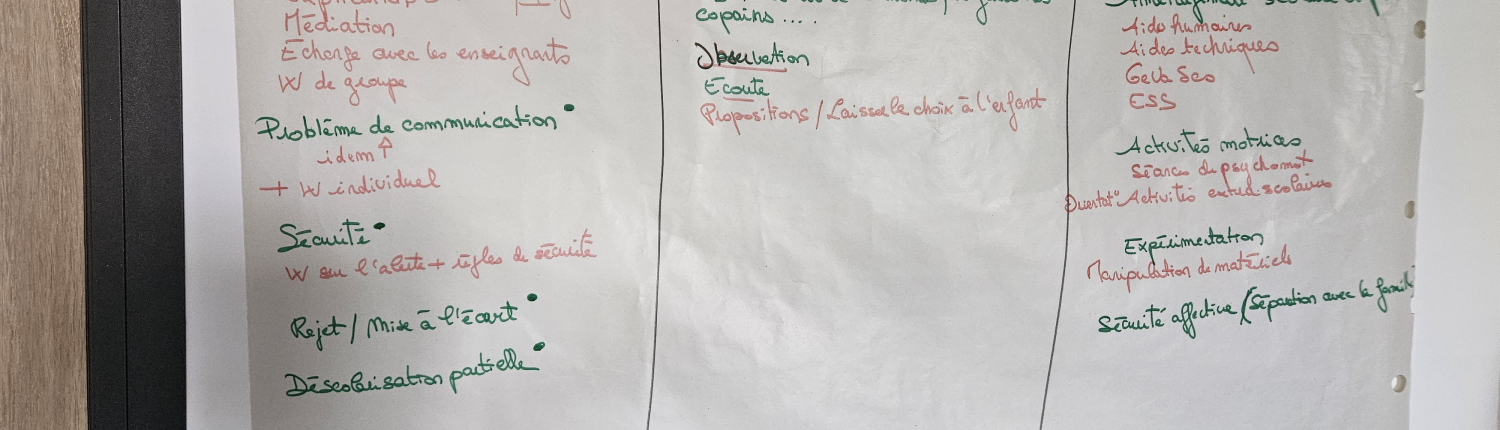 Médiation
Echange avec les enseignants
W de groupe
Problème de communication
idem ↑
+ W individuel
Sécurité
W sur l'alerte + règles de sécurité
Rejet / Mise à l'écart
Déscolarisation partielle
copains .....
Observation
Ecoute
Propositions / Laisser le choix à l'enfant
Aide humaines
Aides techniques
Geva Sco
ESS
Activités motrices
Séances de psychomot
Activités extra-scolaires
Expérimentation
Manipulation de matériels
Sécurité affective (Séparation avec la famille